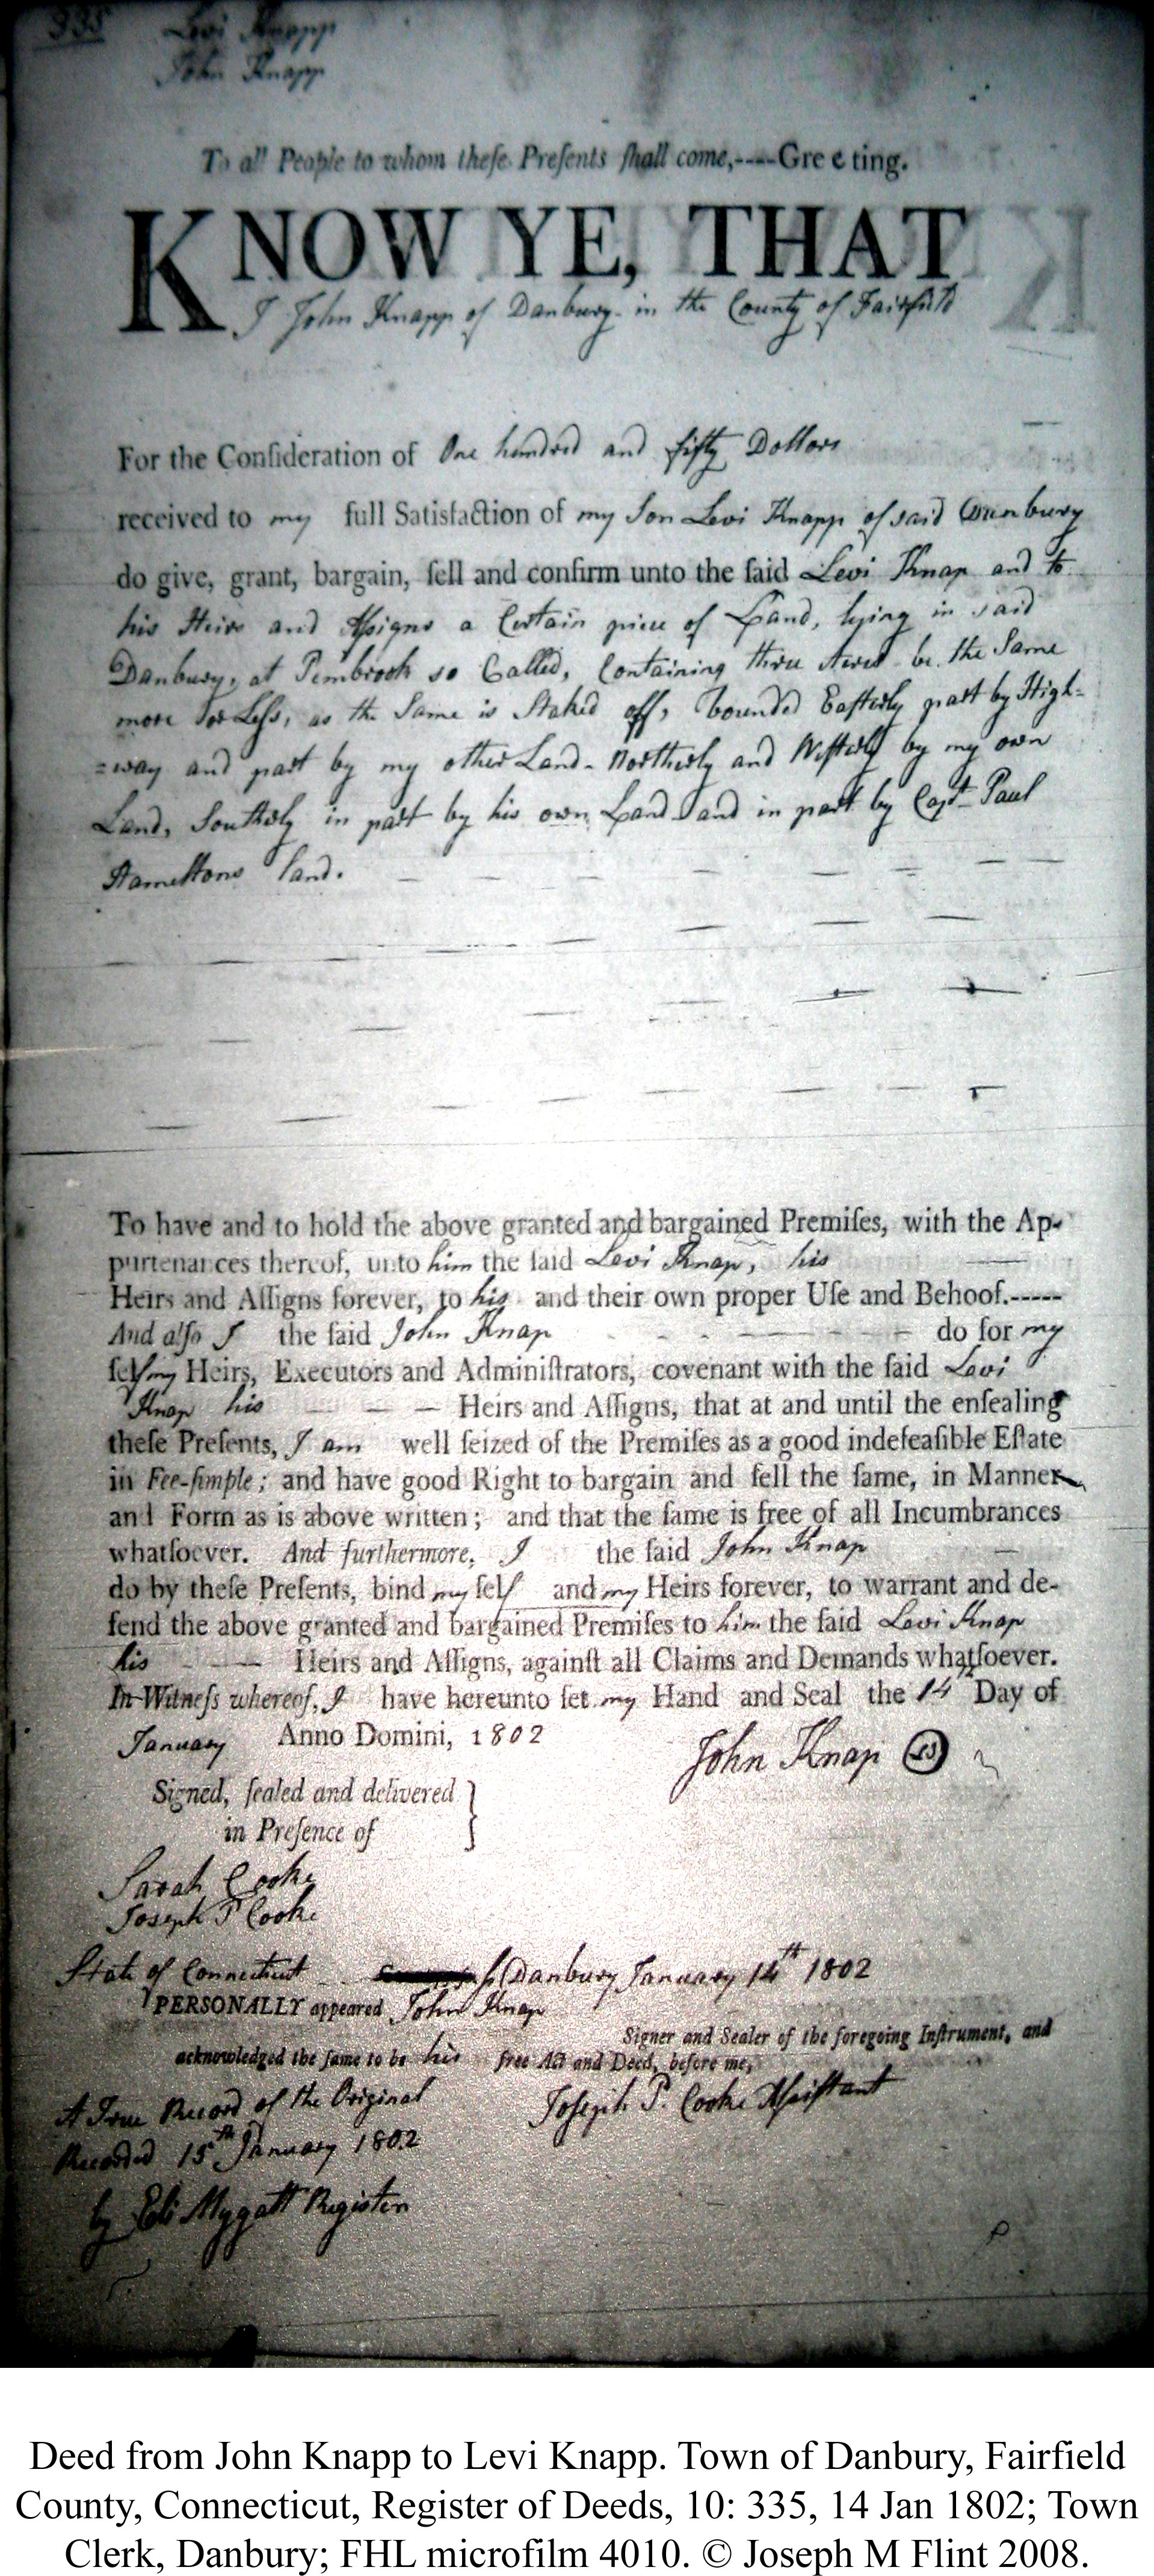 335 Levi Knapp
John Knapp
To all People to whom theſe Preſents ſhall come,----Greeting.
KNOW YE, THAT
I John Knapp of Danbury in the County of Fairfield
For the Conſideration of One hundred and fifty Dollars
received to my full Satisfaction of my Son Levi Knapp of said Danbury
do give, grant, bargain, ſell and confirm unto the ſaid Levi Knap and to
his Heirs and Aſsigns a Certain piece of Land, lying in said
Danbury, at Pembrook so Called, Containing three Acres be the Same
more or Leſs, as the Same is Staked off, bounded Eaſterly part by High-
=way and part by my other Land - Northerly and Weſterly by my own
Land, Southerly in part by his own Land and in part by Capt Paul
Hameltons land.
To have and to hold the above granted and bargained Premiſes, with the Ap-
purtenances thereof, unto him the ſaid Levi Knap, his
Heirs and Aſſigns forever, to his and their own proper Uſe and Behoof.-----
And alſo I the ſaid John Knap do for my
ſelf my Heirs, Executors and Adminiſtrators, covenant with the ſaid Levi
Knap his Heirs and Aſſigns, that at and until the enſealing
theſe Preſents, I am well ſeized of the Premiſes as a good indefeaſible Eſtate
in Fee-ſimple; and have good Right to bargain and ſell the ſame, in Manner
and Form as is above written; and that the ſame is free of all Incumbrances
whatſoever. And furthermore, I the ſaid John Knap
do by theſe Preſents, bind my ſelf and my Heirs forever, to warrant and de-
fend the above granted and bargained Premiſes to him the ſaid Levi Knap
his Heirs and Aſſigns, againſt all Claims and Demands whatſoever.
In Witneſs whereof, I have hereunto ſet my Hand and Seal the 14 Day of
January Anno Domini, 1802
John Knap LS
Signed, ſealed and delivered
in Preſence of
Sarah Cooke
Joseph P Cooke
State of Connecticut Danbury January 14th 1802
PERSONALLY appeared John Knap
Signer and Sealer of the foregoing Inſtrument, and
acknowledged the ſame to be his free Act and Deed, before me,
Joſeph P. Cooke Aſsiſtant
A True Record of the Original
Recorded 15th January 1802
by Eli Mygatt Register
Deed from John Knapp to Levi Knapp. Town of Danbury, Fairfield
County, Connecticut, Register of Deeds, 10: 335, 14 Jan 1802; Town
Clerk, Danbury; FHL microfilm 4010. © Joseph M Flint 2008.